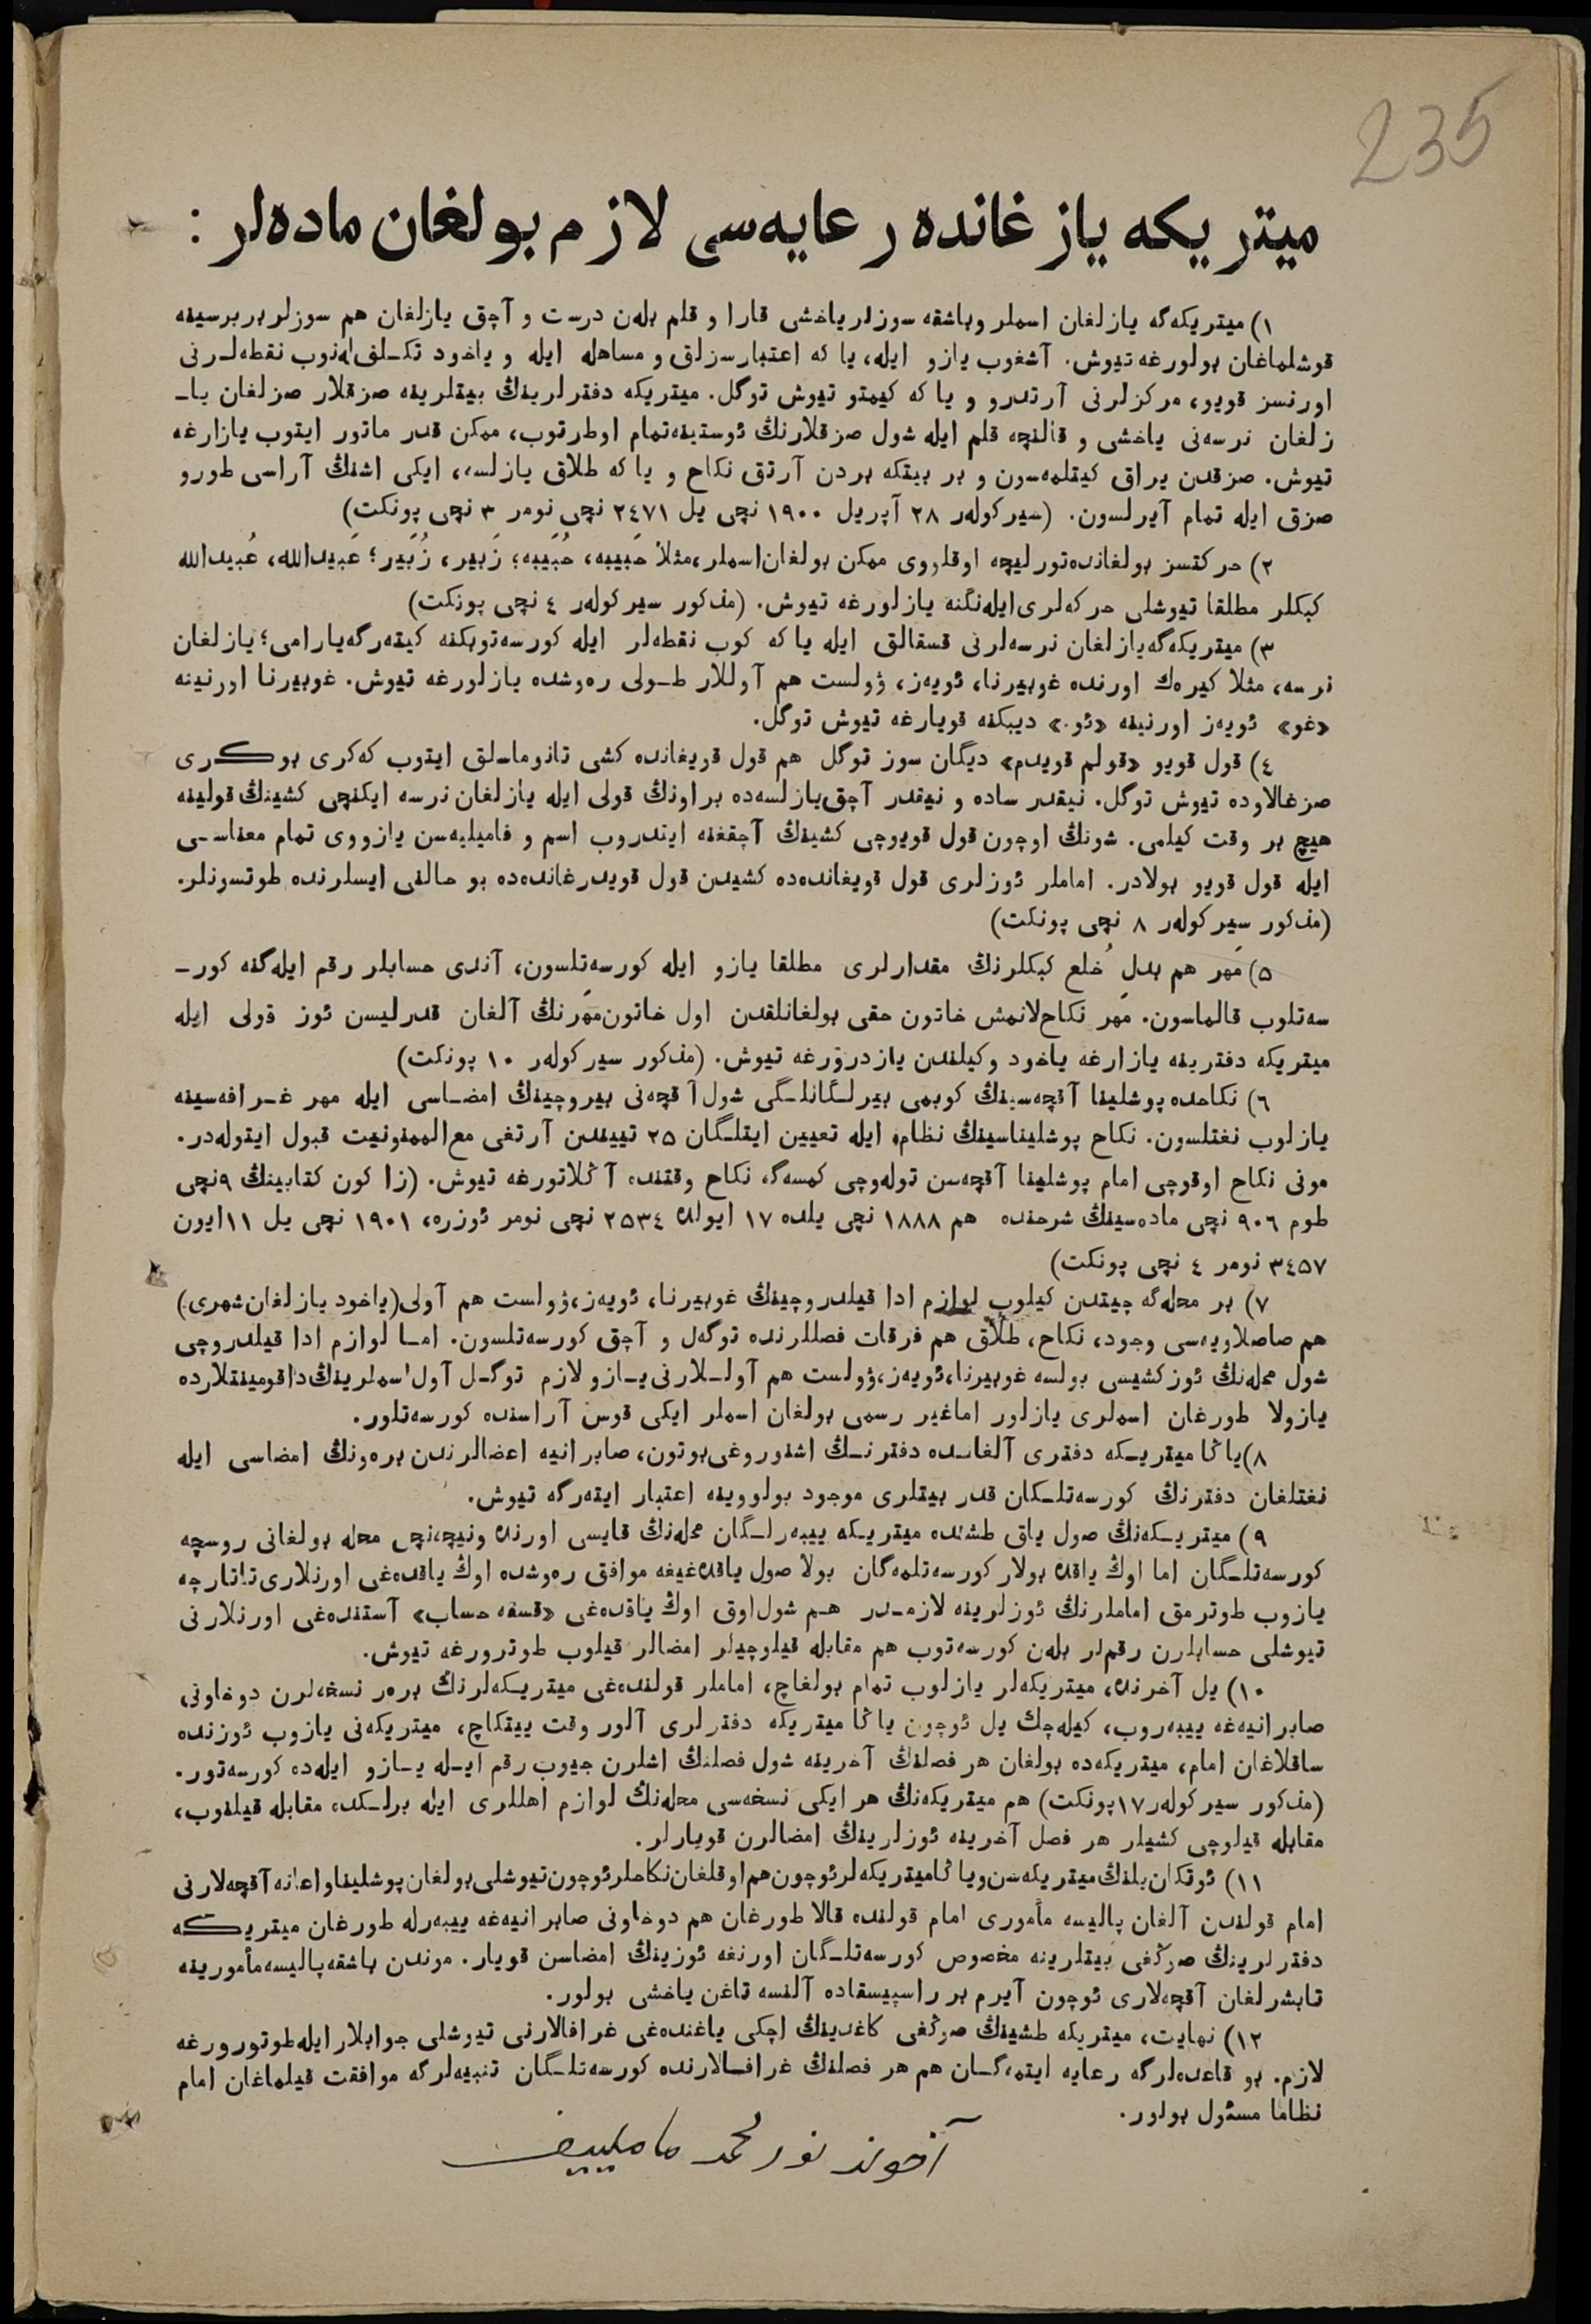 235
میتریکه یازغانده رعایه‌سی لازم بولغان ماده‌لر :
١) میتریکه‌گه یازلغان اسملر وباشقه سوزلر یاخشی قارا و قلم بله‌ن درست و آچق یازلغان هم سوزلر بربرسینه
قوشلماغان بولورغه تیوش. آشغوب یازو ایله، یا که اعتبارسزلق و مساهله ایله و یاخود تکـلف له‌نوب نقطه‌لـرنی
اورنسز قویو، مرکزلرنی آرتدرو و یا که کیمتو تیوش توگل. میتریکه دفترلرینڭ بیتلرینه صزقلار صزلغان یا‌ـ
زلغان نرسه‌نی یاخشی و قالنچه قلم ایله شول صزقلارنڭ ئوستینه‌تمام اوطرتوب، ممکن قدر ماتور ایتوب یازارغه
تیوش. صزقدن یراق کیتلمه‌سون و بر بیتکه بردن آرتق نکاح و یا که طلاق یازلسه، ایکی اشنڭ آراسی طورو
صزق ایله تمام آیرلسون. (سیرکوله‌ر ٢٨ آپریل ١٩٠٠ نچی یل ٢٤٧١ نچی نومر ٣ نچی پونکت)
٢) حرکتسز بولغانده‌تورلیچه اوقلووی ممکن بولغان‌اسملر،مثلا حَبیبه، حُبَیبه؛ زَبیر، زُبَیر؛ عَبیدالله، عُبیدالله
کبکلر مطلقا تیوشلی حرکه‌لری‌ایله‌نگنه یازلورغه تیوش. (مذکور سیرکوله‌ر ٤ نچی پونکت)
٣) میتریکه‌گه‌یازلغان نرسه‌لرنی قسقالق ایله یا که کوب نقطه‌لر ایله کورسه‌توبکنه کیته‌رگه‌یارامی؛ یازلغان
نرسه، مثلا کیره‌ك اورنده غوبیرنا، ئویه‌ز، ۇولست هم آوللار طـولی ره‌وشده یازلورغه تیوش. غوبیرنا اورنینه
«غو» ئویه‌ز اورنینه «ئو.» دیبکنه قویارغه تیوش توگل.
٤) قول قویو «قولم قویدم» دیگان سوز توگل هم قول قویغانده کشی تانوماسلق ایتوب که‌کری بوکـری
صزغالاوده تیوش توگل. نیقدر ساده و نیقدر آچق‌یازلسه‌ده براونڭ قولی ایله یازلغان نرسه ایکنچی کشینڭ قولینه
هیچ بر وقت کیلمی. شونڭ اوچون قول قویوچی کشینڭ آچقغنه ایتدروب اسم و فامیلیه‌سن یازووی تمام معناسـی
ایله قول قویو بولادر. اماملر ئوزلری قول قویغانده‌ده کشیدن قول قویدرغانده‌ده بو حالنی ایسلرنده طوتسونلر.
(مذکور سیرکوله‌ر ٨ نچی پونکت)
٥) مَهر هم بدلِ خُلع کبکلرنڭ مقدارلری مطلقا یازو ایله کورسه‌تلسون، آندی حسابلر رقم ایله‌گنه کورـ
سه‌تلوب قالماسون. مَهر نکاح‌لانمش خاتون حقی بولغانلقدن اول خاتون‌مَهرنڭ آلغان قدرلیسن ئوز قولی ایله
میتریکه دفترینه یازارغه یاخود وکیلندن یازدرۇرغه تیوش. (مذکور سیرکوله‌ر ١٠ پونکت)
٦) نکاحده پوشلینا آقچه‌سینڭ کوبمی بیرلـگانلـگی شول آقچه‌نی بیروچینڭ امضـاسی ایله مهر غـرافه‌سینه
یازلوب نغتلسون. نکاح پوشلیناسینڭ نظام ایله تعیین ایتلـگان ٢٥ تییندن آرتغی مع‌الممنونیت قبول ایتوله‌در.
مونی نکاح اوقوچی امام پوشلینا آقچه‌سن توله‌وچی کمسه‌گه نکاح وقتنده آڭلاتورغه تیوش. (زا کون کتابینڭ ٩نچی
طوم ٩٠٦ نچی ماده‌سینڭ شرحنده هم ١٨٨٨ نچی یلده ١٧ ایولده ٢٥٣٤ نچی نومر ئوزره، ١٩٠١ نچی یل ١١ایون
٣٤٥٧ نومر ٤ نچی پونکت)
٧) بر محله‌گه چیتدن کیلوب لوازم ادا قیلدروچینڭ غوبیرنا، ئویه‌ز،ۇولست هم آولی(یاخود یازلغان‌شهری)
هم صاصلاویه‌سی وجود، نکاح، طلاق هم فرقات فصللرنده توگه‌ل و آچق کورسه‌تلسون. امـا لوازم ادا قیلدروچی
شول محله‌نڭ ئوزکشیسی بولسه غوبیرنا،ئویه‌ز،ۇولست هم آولـلارنی یـازو لازم توگـل آول‌اسملرینڭ‌داقومینتلارده
یازولا طورغان اسملری یازلور اماغیر رسمی بولغان اسملر ایکی قوس آراسنده کورسه‌تلور.
٨)یاڭا میتریـکه دفتری آلغانـده دفترنـڭ اشنوروغی‌بوتون، صابرانیه اعضالرندن بره‌ونڭ امضاسی ایله
نغتلغان دفترنڭ کورسه‌تلـکان قدر بیتلری موجود بولووینه اعتبار ایته‌رگه تیوش.
٩) میتریـکه‌نڭ صول یاق طشنده میتریـکه ییبه‌رلـگان محله‌نڭ قایسی اورنده ونیچه‌نچی محله بولغانی روسچه
کورسه‌تلـگان اما اوڭ یاقده بولار کورسه‌تلمه‌گان بولا صول یاقده‌غیغه موافق ره‌وشده اوڭ یاقده‌غی اورنلاری‌تاتارچه
یازوب طوترمق اماملرنڭ ئوزلرینه لازمـدر هـم شول‌اوق اوڭ یاقده‌غی «قسقه حساب» آستنده‌غی اورنلارنی
تیوشلی حسابلرن رقملر بله‌ن کورسه‌توب هم مقابله قیلوچیلر امضالر قیلوب طوترورغه تیوش.
١٠) یل آخرنده، میتریکه‌لر یازلوب تمام بولغاچ، اماملر قولنده‌غی میتریـکه‌لرنڭ بره‌ر نسخه‌لرن دوخاونی
صابرانیه‌غه ییبه‌روب، کیله‌چك یل ئوچون یاڭا میتریکه دفترلری آلور وقت ییتکاچ، میتریکه‌نی یازوب ئوزنده
ساقلاغان امام، میتریکه‌ده بولغان هر فصلنڭ آخرینه شول فصلنڭ اشلرن جیوب رقم ایـله یـازو ایله‌ده کورسه‌تور.
(مذکور سیرکوله‌ر١٧پونکت) هم میتریکه‌نڭ هر ایکی نسخه‌سی محله‌نڭ لوازم اهللری ایله برلـکده مقابله قیلنوب،
مقابله قیلوچی کشیلر هر فصل آخرینه ئوزلرینڭ امضالرن قویارلر.
١١) ئوتکان‌یلنڭ‌میتریکه‌سن‌ویاڭامیتریکه‌لرئوچون‌هم‌اوقلغان‌نکاحلرئوچون‌تیوشلی‌بولغان‌پوشلیناواعانه‌آقچه‌لارنی
امام قولندن آلغان پالیسه مأموری امام قولنده قالا طورغان هم دوخاونی صابرانیه‌غه ییبه‌رله طورغان میتریـکه
دفترلرینڭ صوڭغی بیتلرینه مخصوص کورسه‌تلـگان اورنغه ئوزینڭ امضاسن قویار. موندن باشقه‌پالیسه‌مأمورینه
تابشرلغان آقچه‌لاری ئوچون آیرم بر راسپیسقاده آلنسه تاغن یاخشی بولور.
١٢) نهایت، میتریکه طشینڭ صوڭغی کاغدینڭ اچکی یاغنده‌غی غرافالارنی تیوشلی جوابلار ایله‌طوتورورغه
لازم. بو قاعده‌لرگه رعایه ایتمه‌گـان هم هر فصلنڭ غرافـالارنده کورسه‌تلـگان تنبیه‌لرگه موافقت قیلماغان امام
نظاما مسئول بولور.
آخوند نورمحمد ماملییف